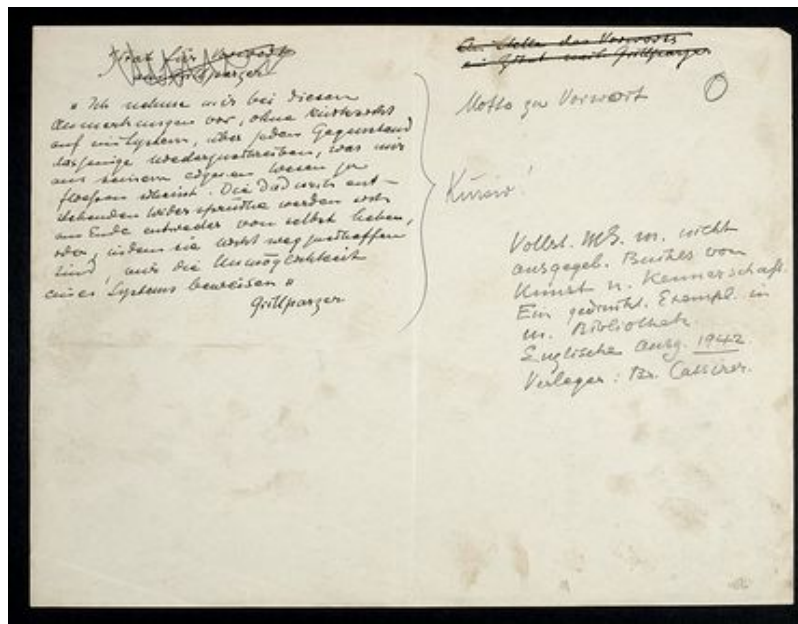 Zitat für Vorwort
von Grillparzer
„Ich nehme mir bei diesen
Anmerkungen vor, ohne Rücksicht
auf ein System, über jeden Gegenstand
dasjenige niederzuschreiben, was mir
aus seinem eigenen Wesen zu
fliessen scheint. Die Dadurch ent-
stehenden Widersprüche werden sich
am Ende entweder von selbst heben,
oder, indem sie nicht wegzuschaffen
sind, mir die Unmöglichkeit
eines Systems beweisen"
Grillparzer
An Stelle des Vorworts
ein Zitat nach Grillparzer
Motto zu Vorwort
Kursiv!
Vollst. MS. m. nicht
ausgegeb. Buches von
Kunst u. Kennerschaft.
Ein gedruckt. Exempl. in
m. Bibliothek.
Englische Ausg. 1942
Verleger: Br. Cassirer.